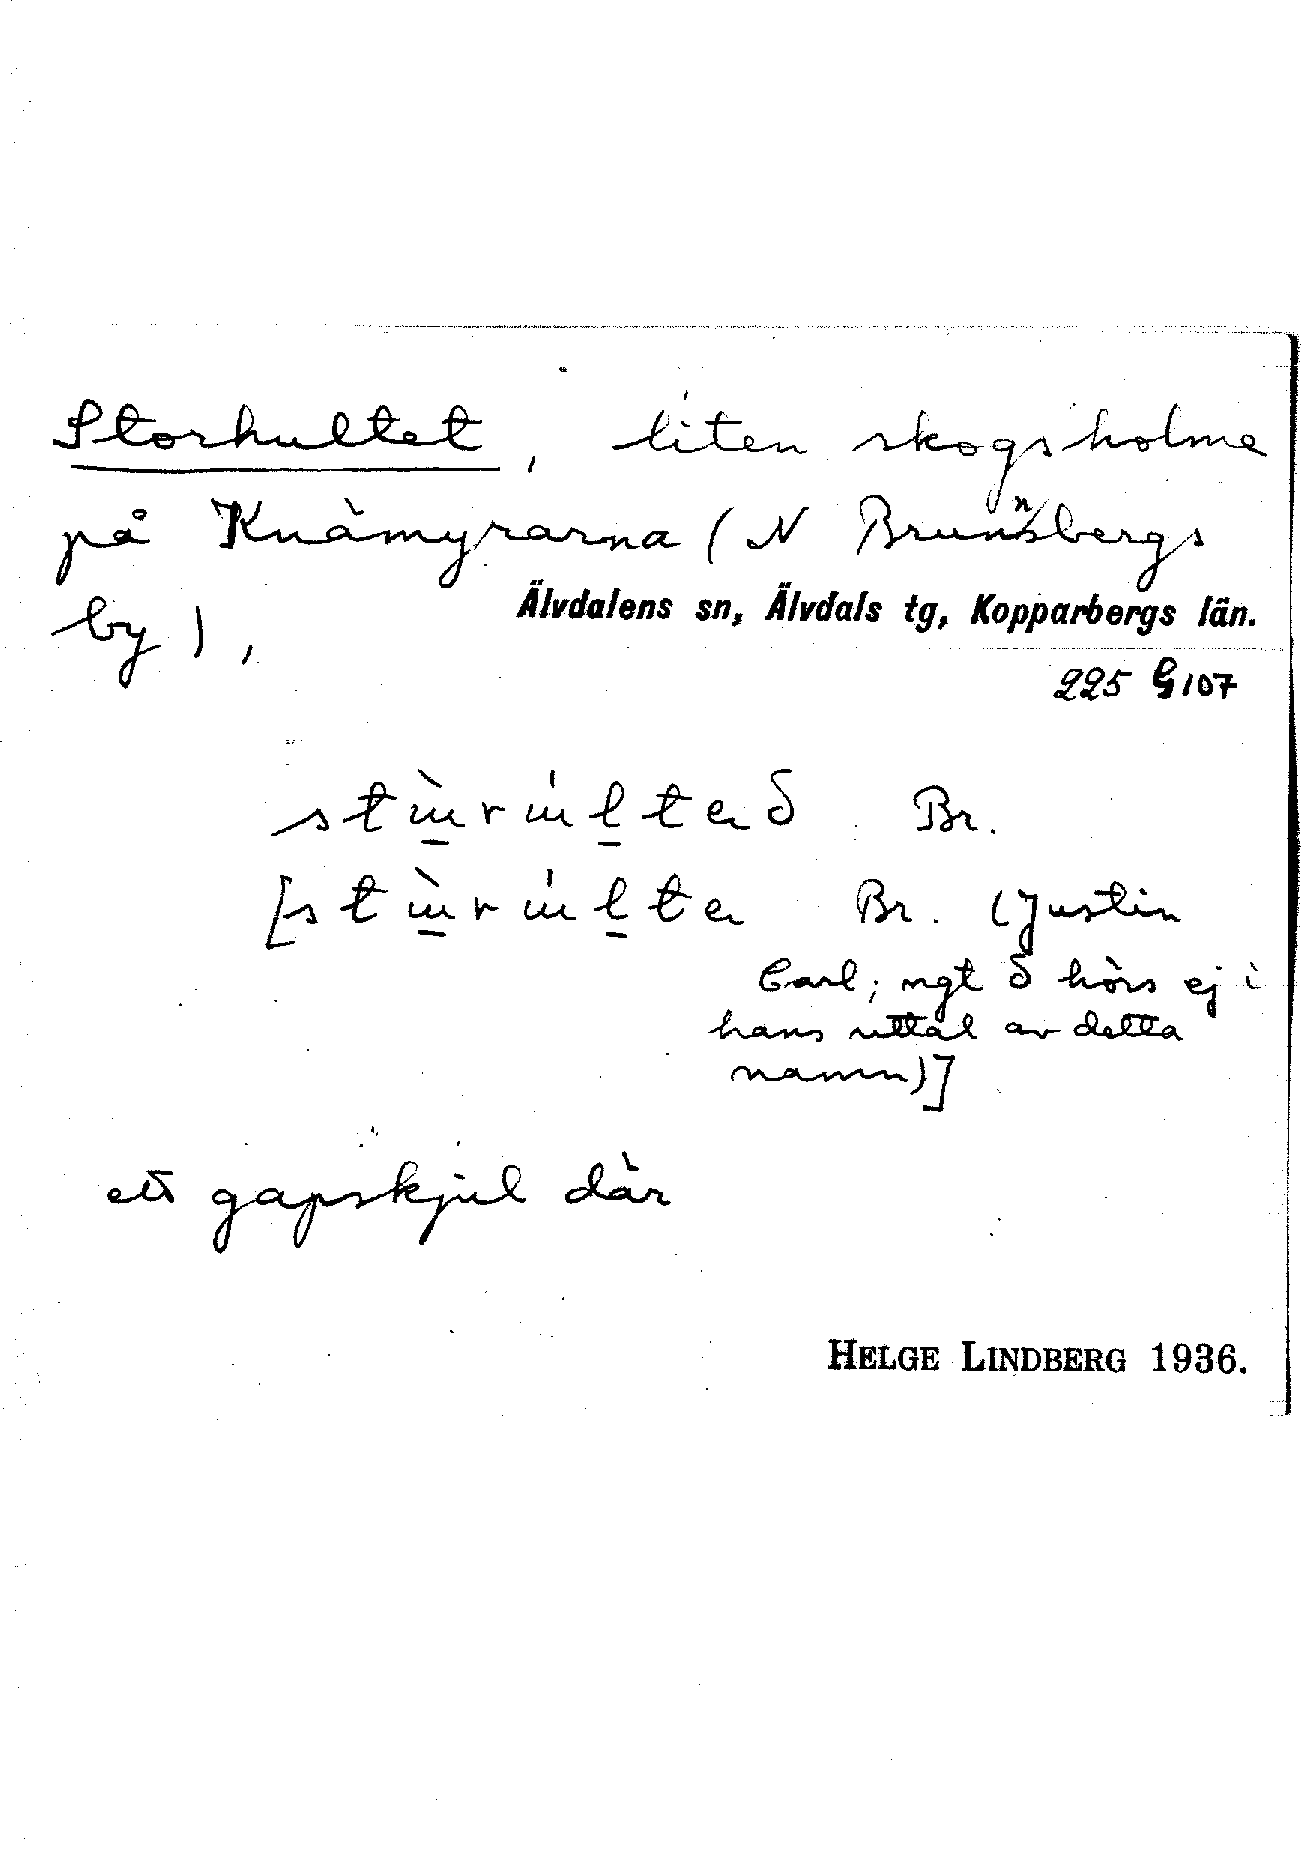 Storhultet, liten skogsholme
på Knämyrarna (N Brunnsbergs
by),
Älvdalens sn, Älvdals tg, Kopparbergs län.
225 G 107
Br.
Br. (Justin
Carl; ngt ð hörs ej i
hans uttal av detta
namn)]
ett gapskjul där
HELGE LINDBERG 1936.